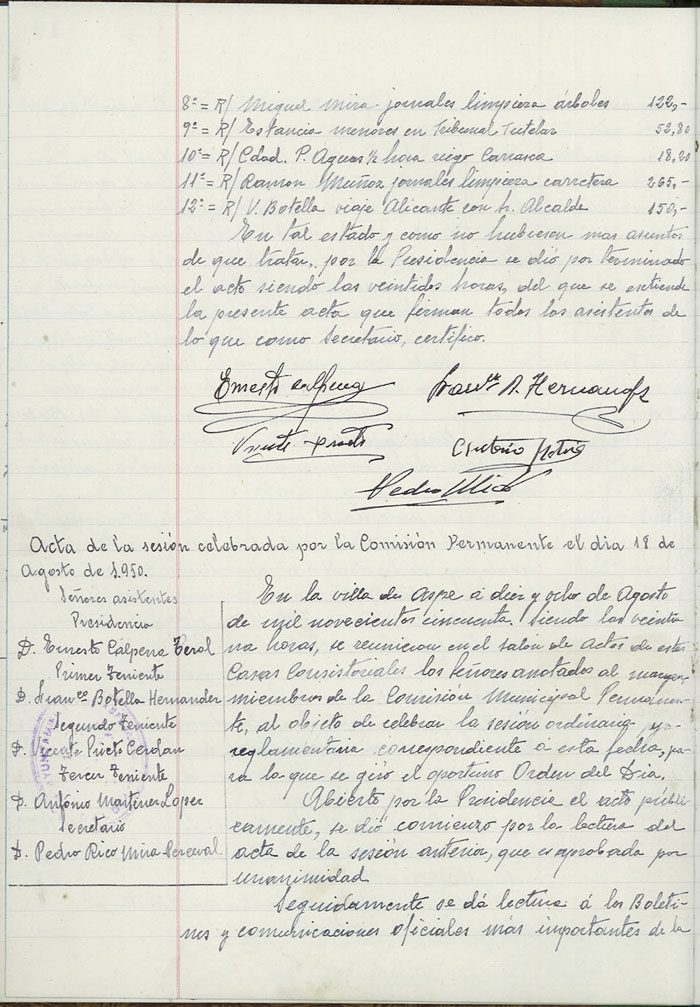 8º = R/ Miguel Mira jornales limpieza árboles 122,-
9º = R/ Estancia menores en Tribunal Tutelar 52,80
10º = R/ Cdad. P. Aguas ½ hora riego Carrasca 18,20
11º = R/ Ramon Muñoz jornales limpieza carretera 265,-
12º = R/ V. Botella viaje Alicante con Sr. Alcalde 150,-
En tal estado y como no hubiesen mas asuntos
de que tratar, por la Presidencia se dió por terminado
el acto siendo las veintidos horas, del que se extiende
la presente acta que firman todos los asistentes de
lo que como Secretario, certifico.
Ernesto Calpena
B. Hernandez
Vicente Prieto
Antonio
Pedro Rico
Acta de la sesión celebrada por la Comisión Permanente el dia 18 de
Agosto de 1.950.
Señores asistentes
Presidencia
D. Ernesto Calpena Terol
Primer Teniente
D. Franco Botella Hernander
Segundo Teniente
D. Vicente Prieto Cerdan
Tercer Teniente
D. António Martinez Lopez
Secretario
D. Pedro Rico Mira Perceval
En la villa de Aspe á diez y ocho de Agosto
de mil novecientos cincuenta. Siendo las veintiu
na horas, se reunieron en el salón de actos de estas
Casas Consistoriales los Señores anotados al margen
miembros de la Comisión Municipal Permanen-
te, al objeto de celebrar la sesión ordinaria y
reglamentaria correspondiente á esta fecha, pa-
ra lo que se giró el oportuno Orden del Dia.
Abierto por la Presidencia el acto públi-
camente, se dió comienzo por la lectura del
acta de la sesión anterior, que es aprobada por
unanimidad
Seguidamente se dá lectura á los Boleti-
nes y comunicaciones oficiales más importantes de la